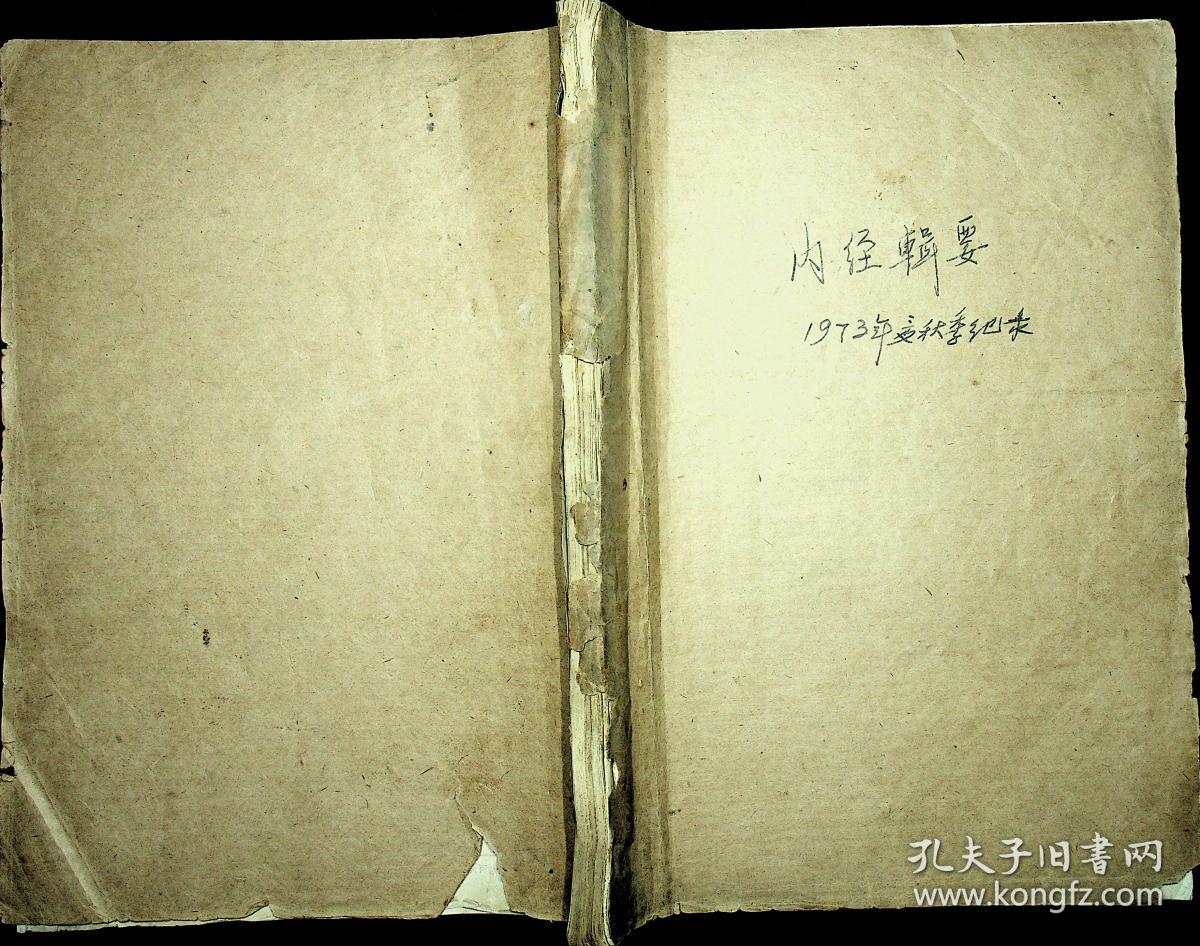 内经輯要
1973年度秋季纪录
孔夫子旧書网
www.kongfz.com